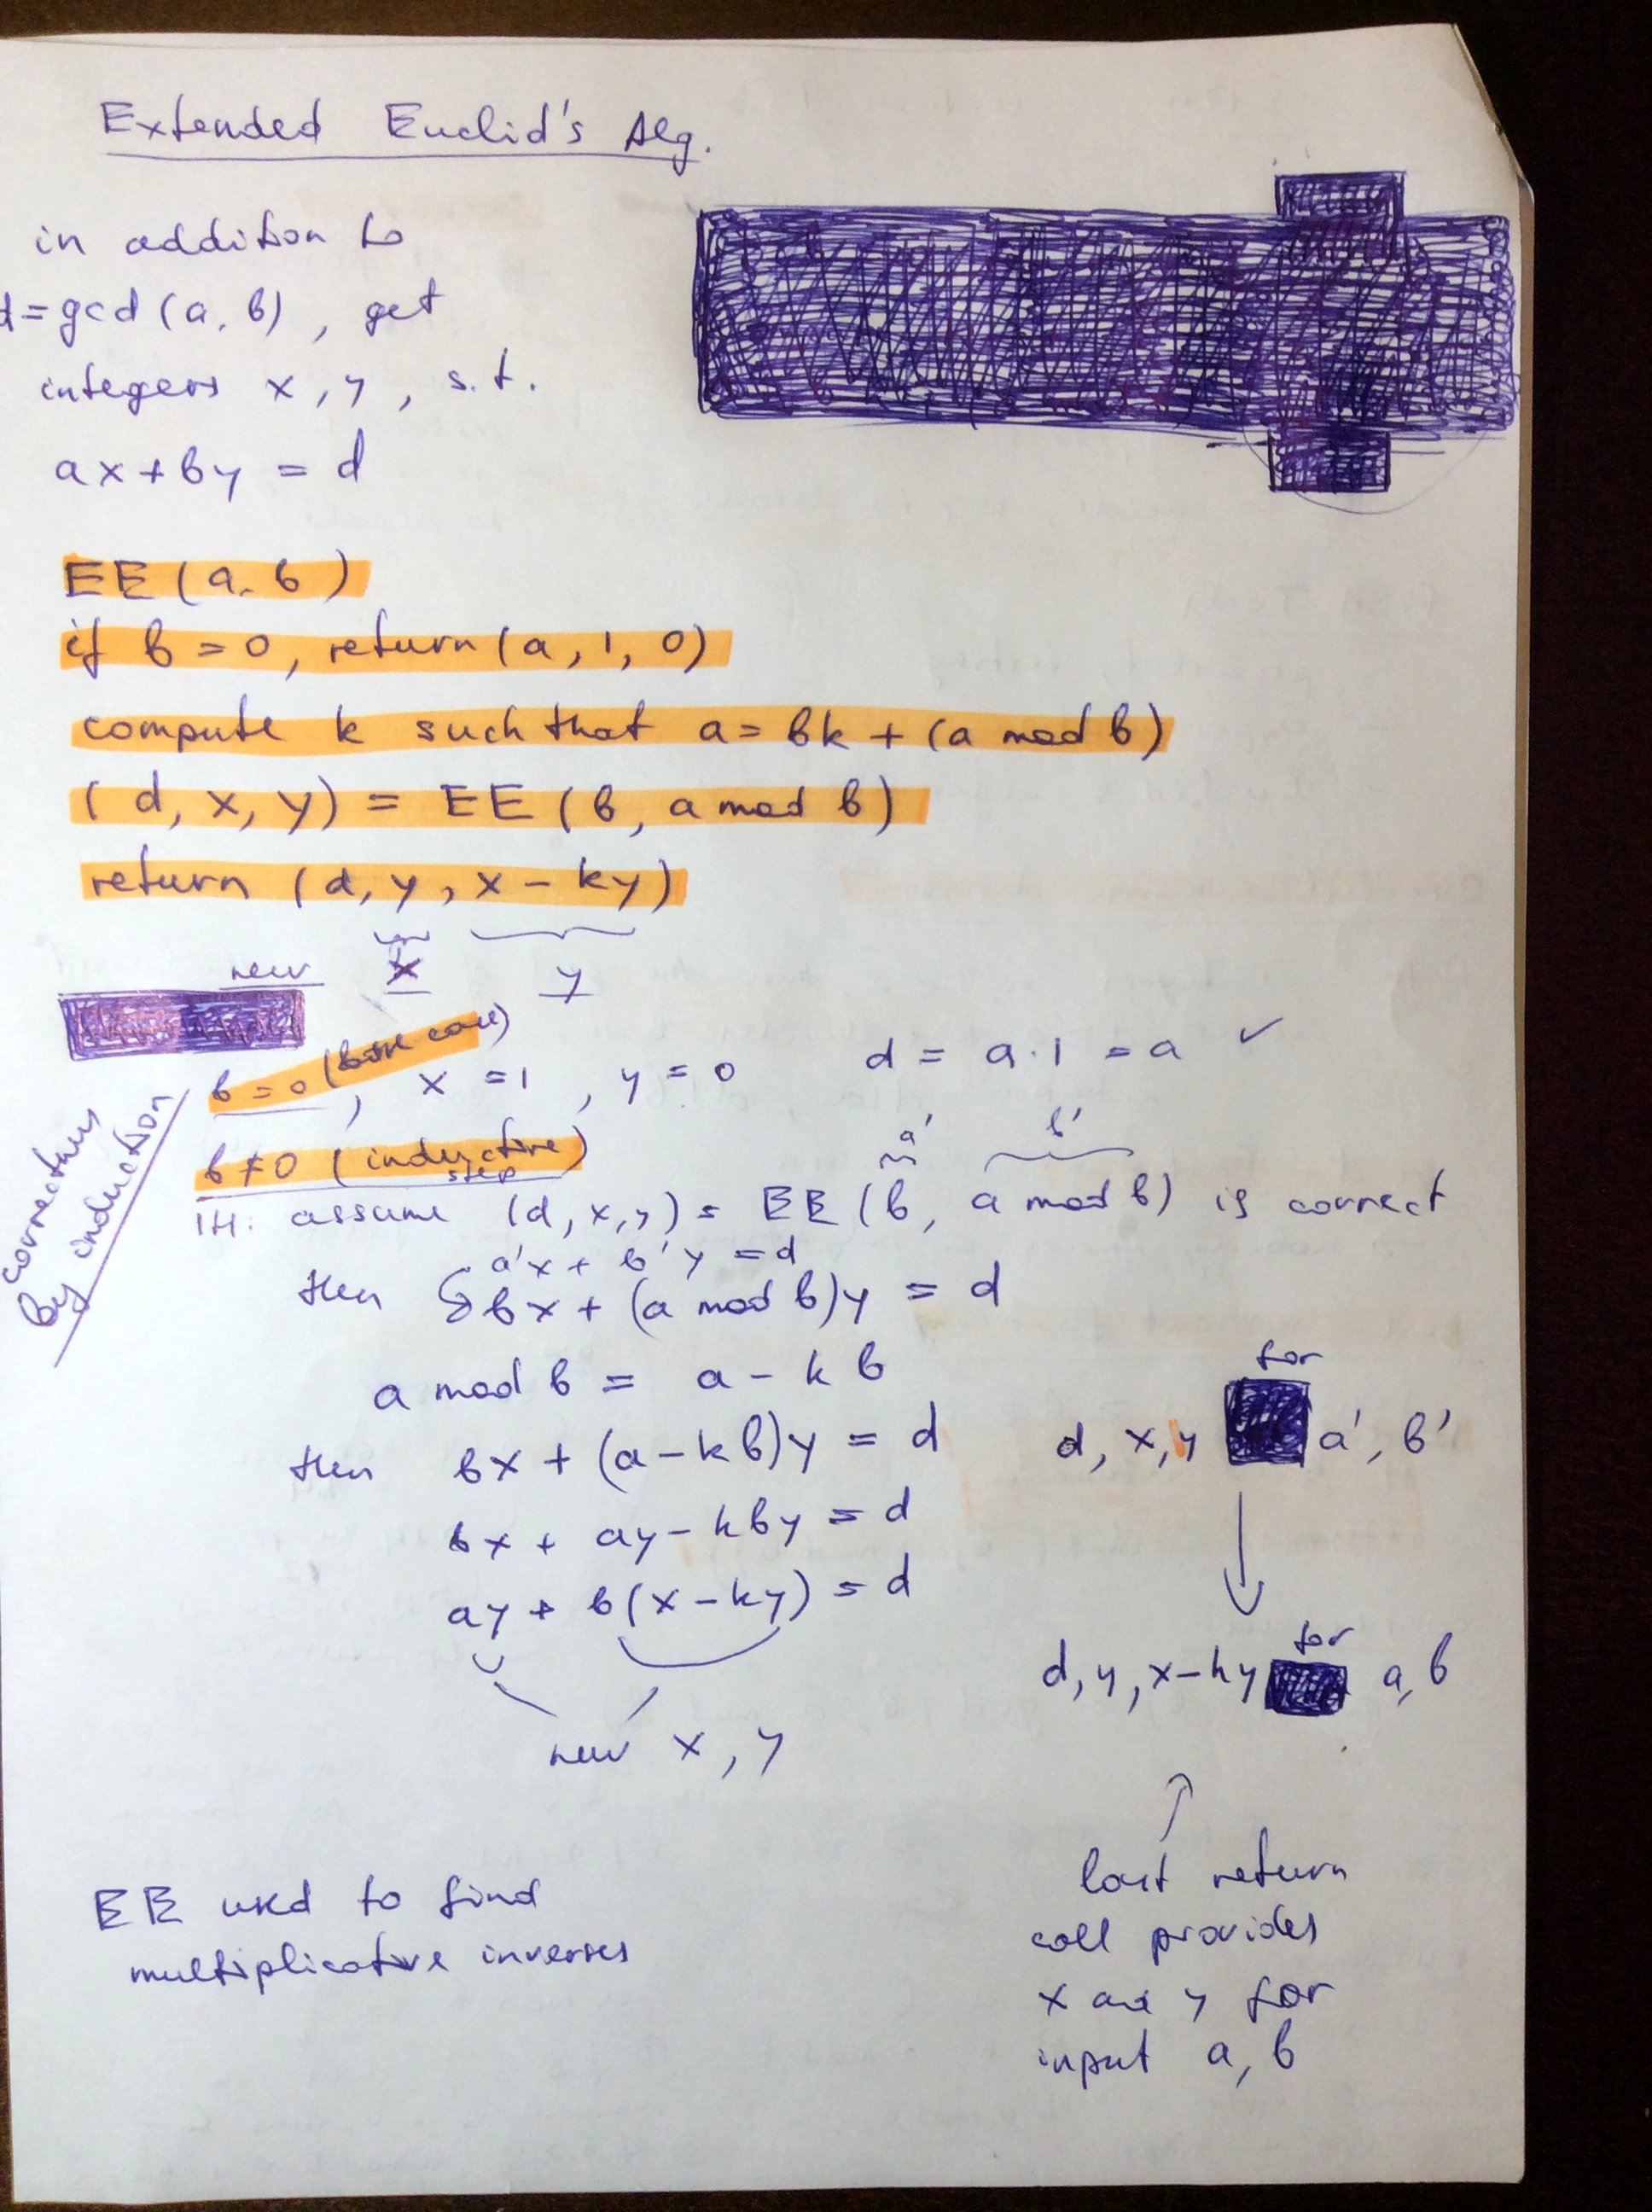 Extended Euclid's Alg.
in addition to
d=gcd(a, b), get
integers x, y, s.t.
ax+by = d
EE(a, b)
if b = 0, return (a, 1, 0)
compute k such that a = bk + (a mod b)
(d, x, y) = EE(b, a mod b)
return (d, y, x - ky)
new x y
b = 0 (base case), x = 1, y = 0 d = a·1 = a ✓
correctness
by induction
b ≠ 0 (inductive
step)
a' b'
IH: assume (d, x, y) = EE(b, a mod b) is correct
a'x + b'y = d
then bx + (a mod b)y = d
a mod b = a - kb
then bx + (a-kb)y = d
bx + ay - kby = d
ay + b(x-ky) = d
new x, y
for
d, x, y a', b'
for
d, y, x-ky a, b
last return
call provides
x and y for
input a, b
EE used to find
multiplicative inverses